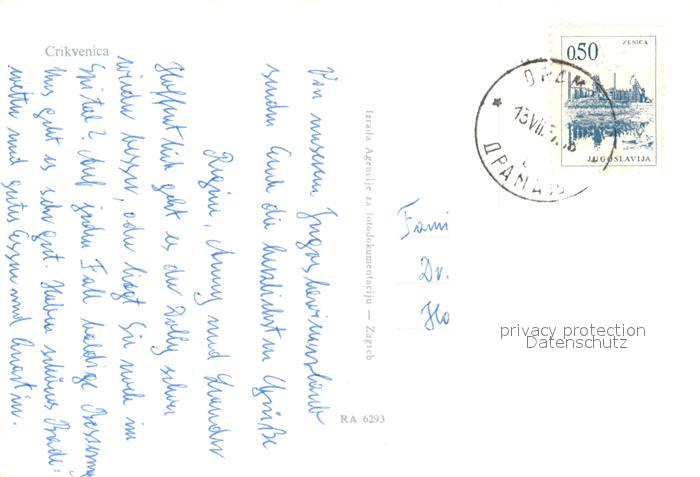 Crikvenica
Von unserem Jugoslawienurlaub
senden Euch die herzlichsten Grüße
Regina, Anny und Leander
Hoffentlich geht es der Dolly schon
wieder besser, oder liegt Sie noch im
Spital? Auf jeden Fall baldige Besserung
Uns geht es sehr gut. Haben schönes Bade-
wetter und gutes Essen und Quartier.
Izrada Agencije za fotodokumentaciju — Zagreb
RA 6293
0,50
ZENICA
JUGOSLAVIJA
13 VII
Fami
Dr.
Ho
privacy protection
Datenschutz